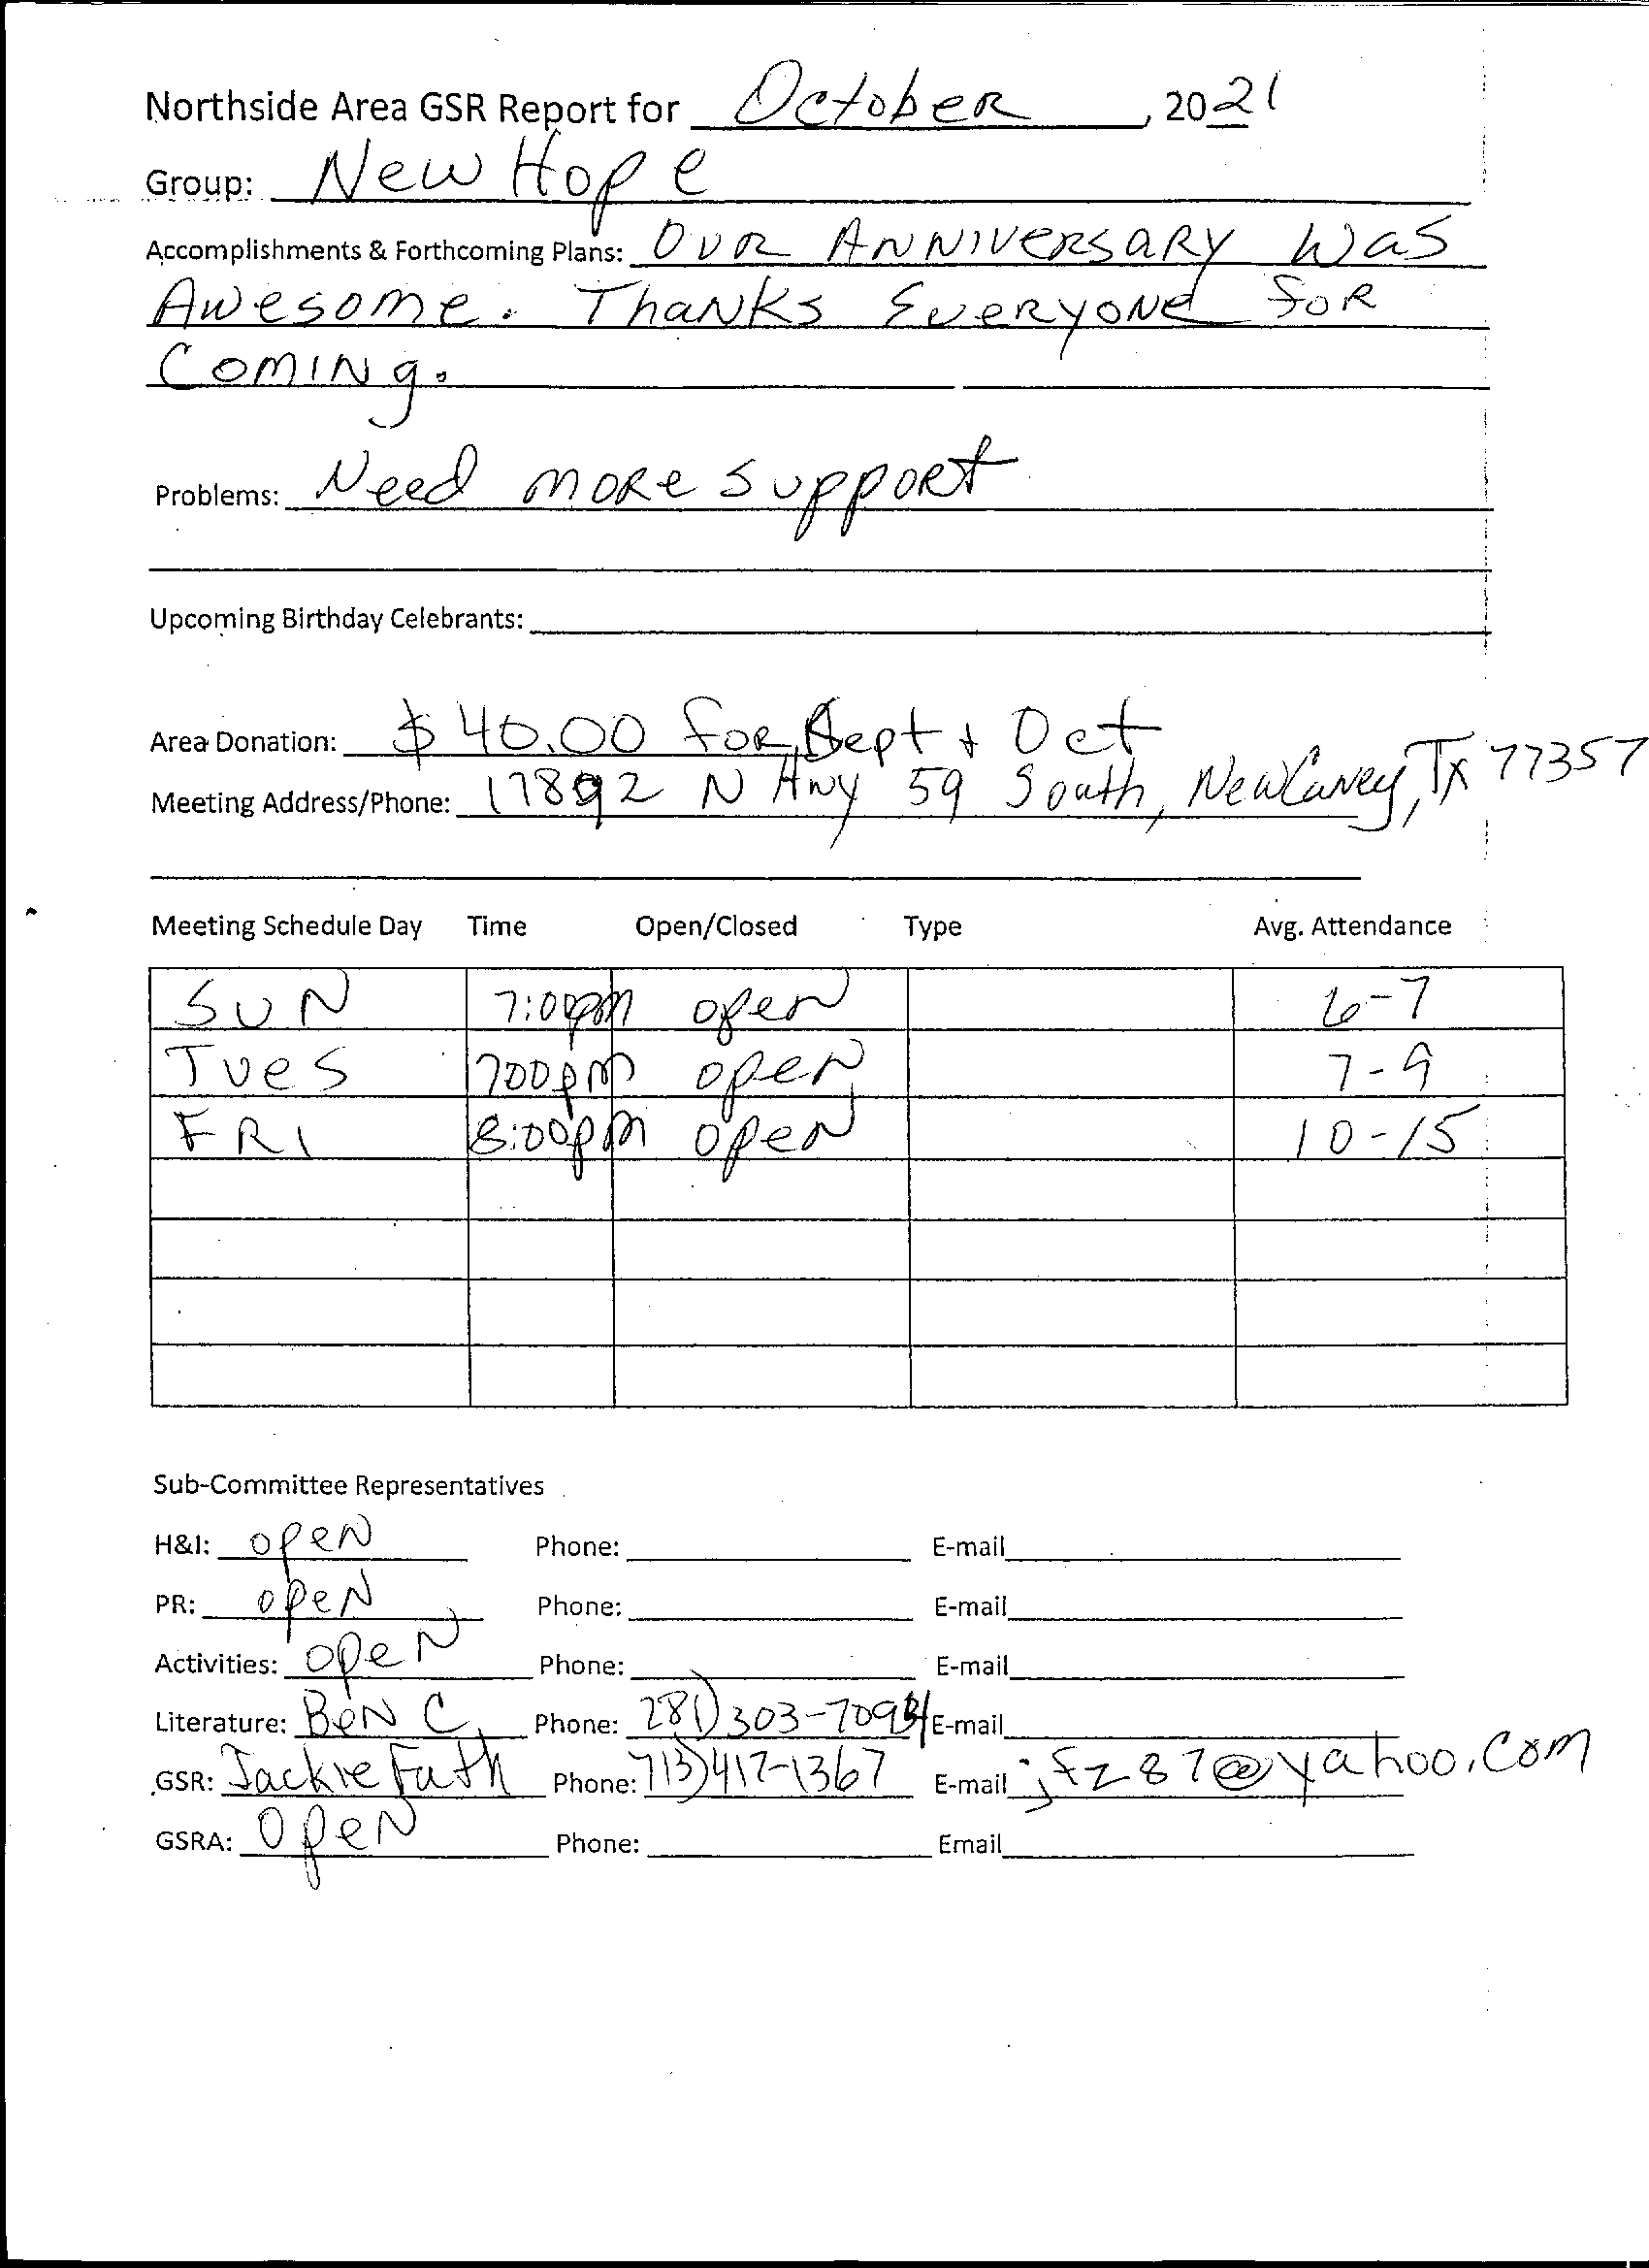 Northside Area GSR Report for October, 2021
Group: New Hope
Accomplishments & Forthcoming Plans: OUR ANNIVERSARY Was
Awesome. Thanks Everyone for
Coming.
Problems: Need more support
Upcoming Birthday Celebrants:
Area Donation: $40.00 for Sept + Oct
Meeting Address/Phone: 17892 N Hwy 59 South, New Caney, Tx 77357
Meeting Schedule Day Time Open/Closed Type Avg. Attendance
SUN 7:00pm open 6-7
Tues 700pm open 7-9
FRI 8:00pm open 10-15
Sub-Committee Representatives
H&I: open Phone: E-mail
PR: open Phone: E-mail
Activities: open Phone: E-mail
Literature: Ben C. Phone: 281) E-mail
GSR: Jackie Phone: 713)417-1367 E-mail jfz87@yahoo.com
GSRA: open Phone: Email